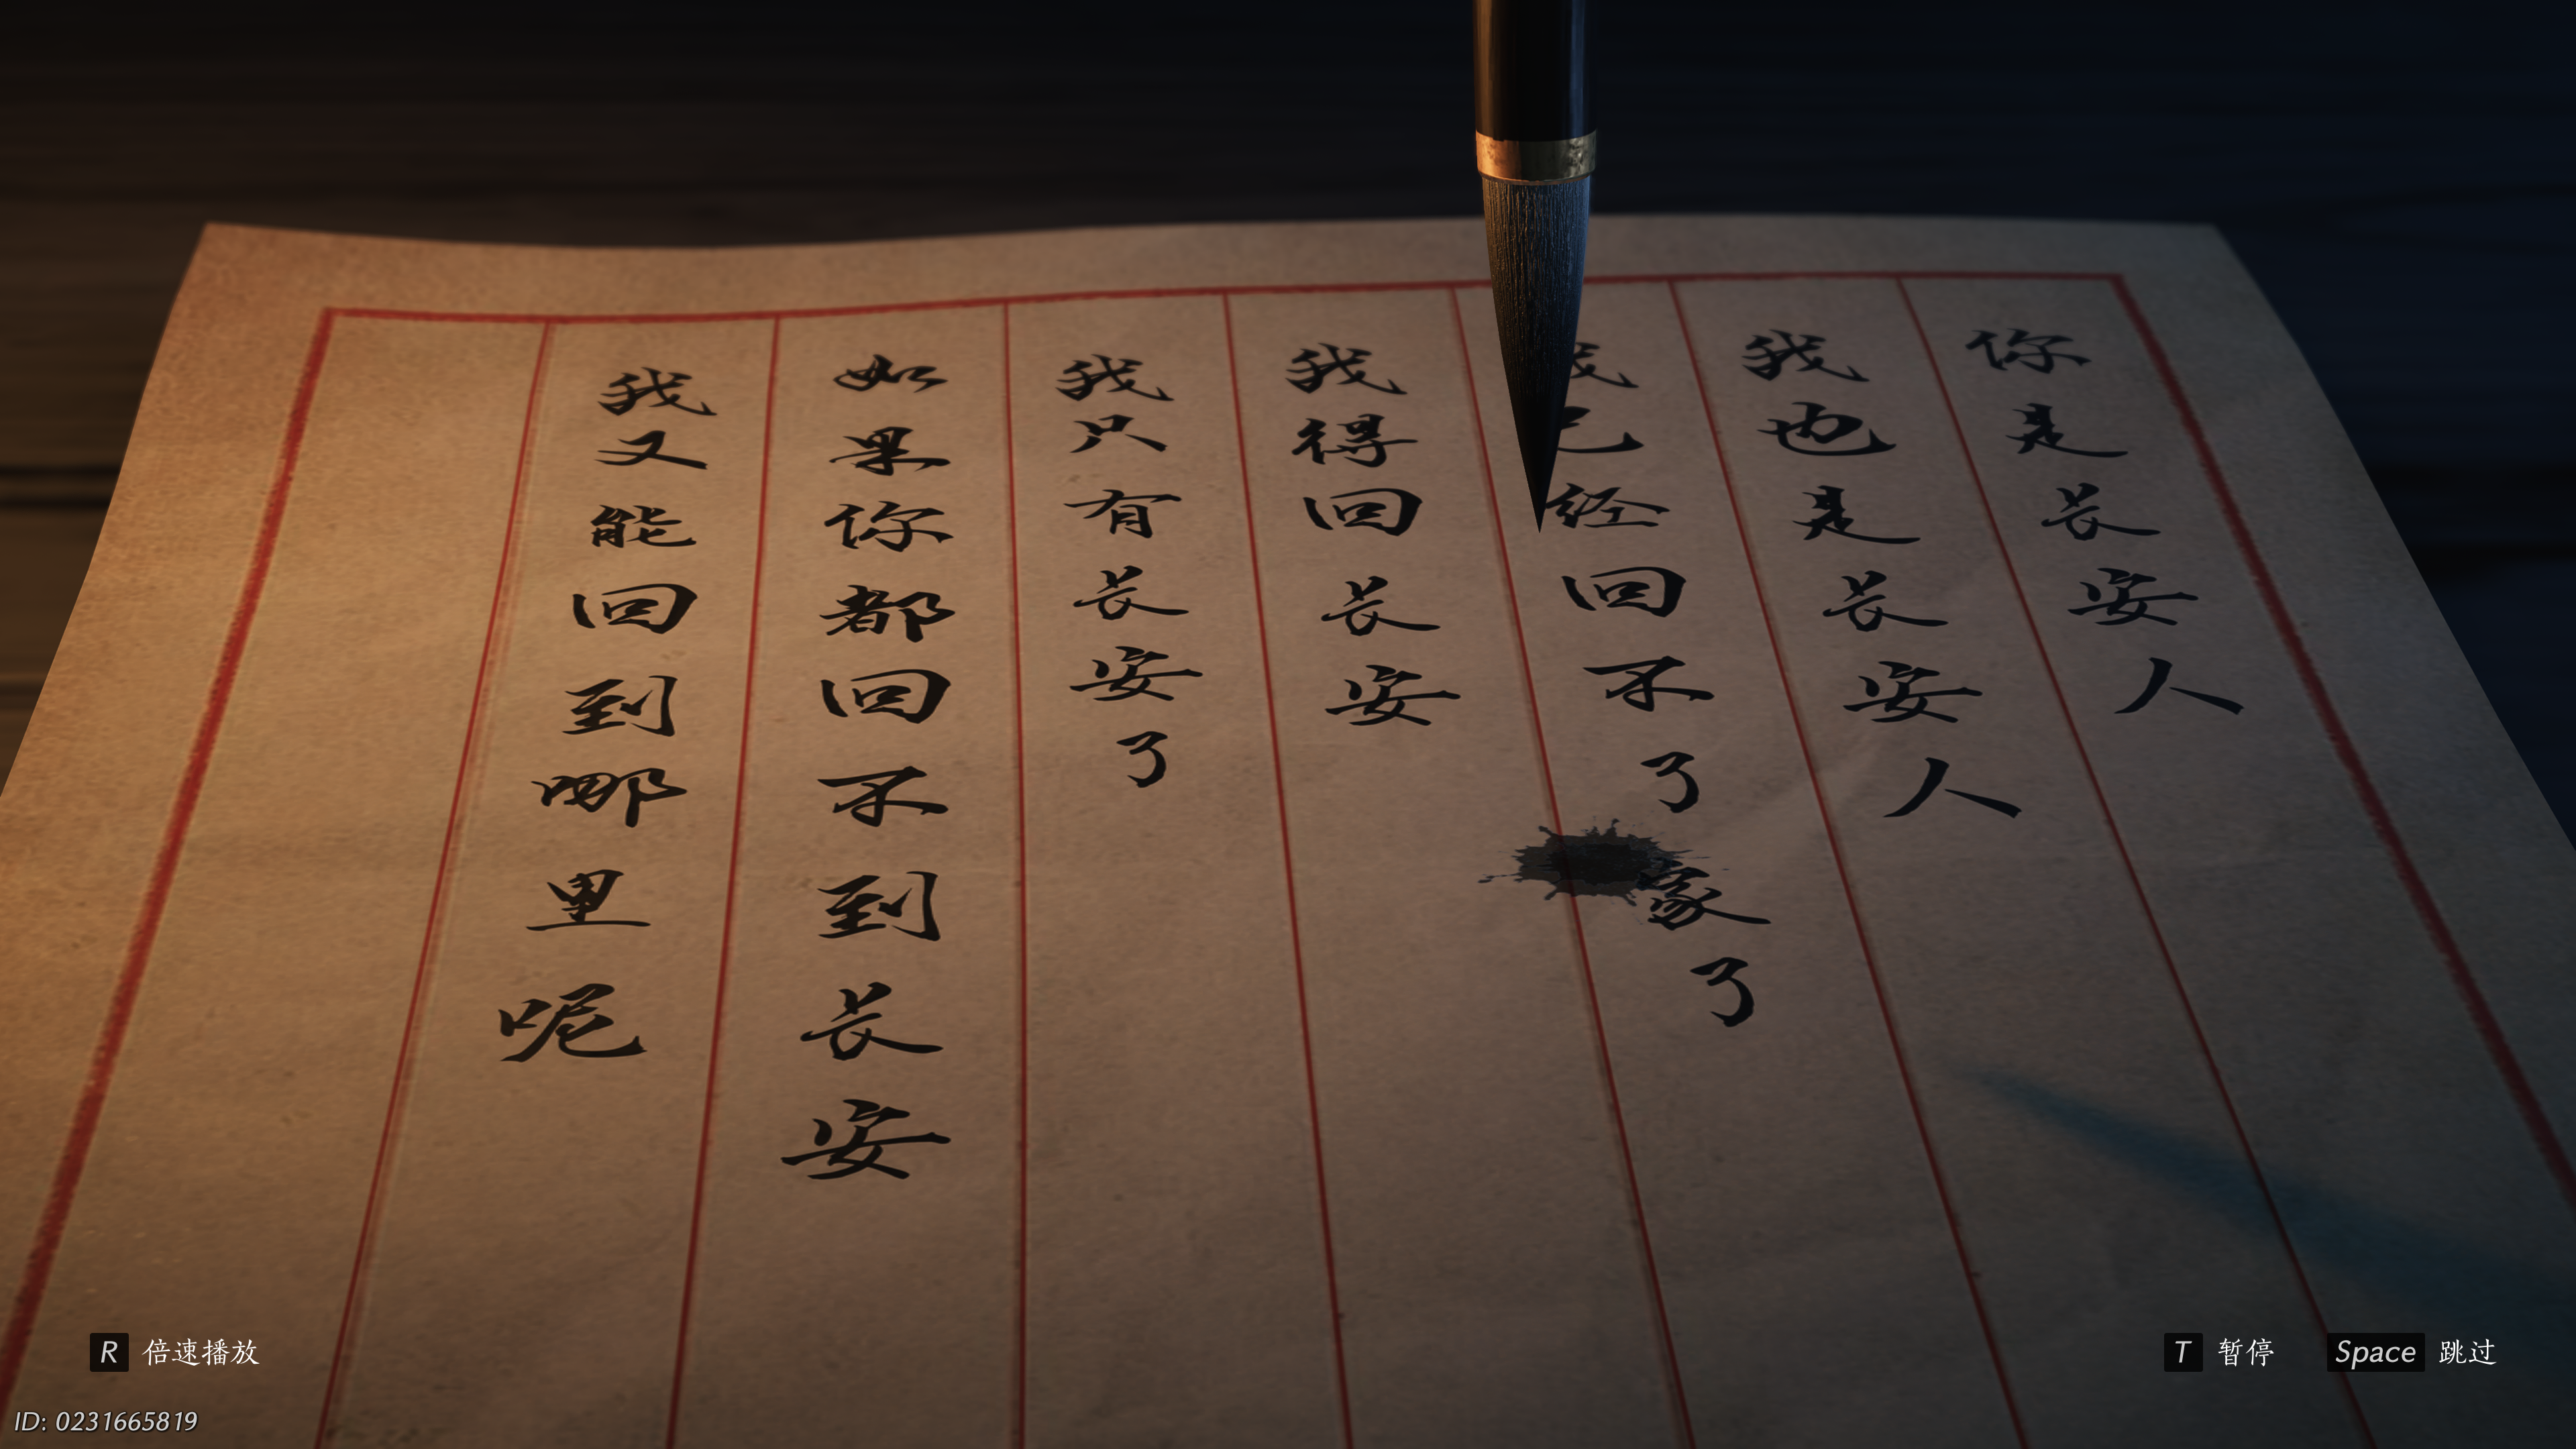 你是长安人
我也是长安人
我已经回不了家了
我得回长安
我只有长安了
如果你都回不到长安
我又能回到哪里呢
R 倍速播放
T 暂停
Space 跳过
ID: 0231665819